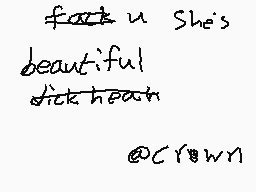 fuck u She's
beautiful
dick hear
@crown